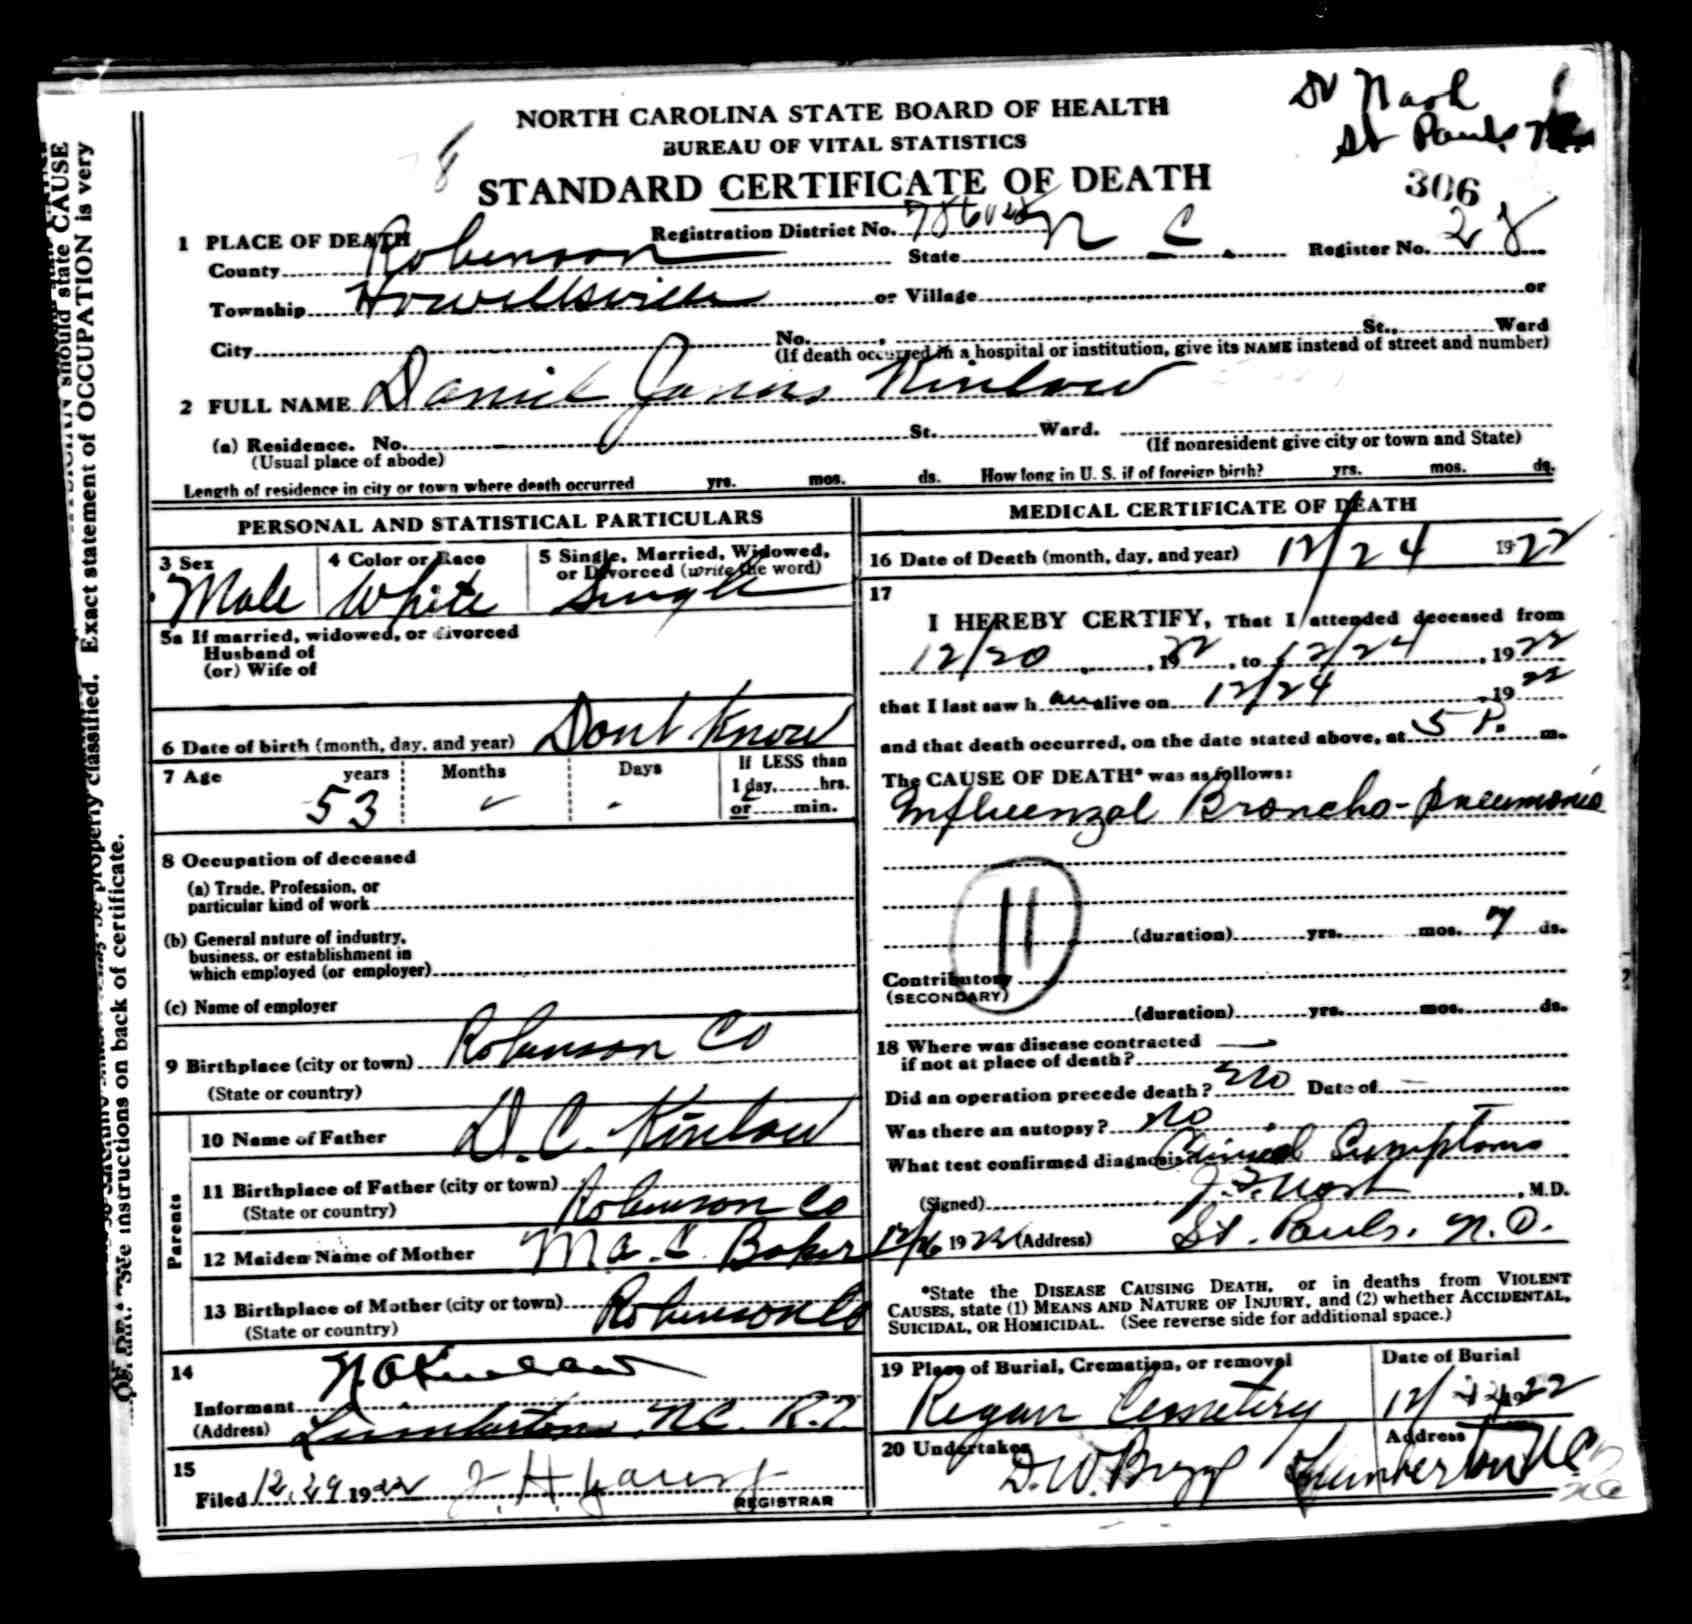 Dr Nash
St Pauls N.C.
NORTH CAROLINA STATE BOARD OF HEALTH
BUREAU OF VITAL STATISTICS
STANDARD CERTIFICATE OF DEATH
306
8
1 PLACE OF DEATH Registration District No.
County Robinson State N C. Register No. 28
Township Howellsville or Village or
City No. St., Ward
(If death occurred in a hospital or institution, give its NAME instead of street and number)
2 FULL NAME Daniel James Kinlaw
(a) Residence. No. St. Ward.
(Usual place of abode) (If nonresident give city or town and State)
Length of residence in city or town where death occurred yrs. mos. ds. How long in U. S. if of foreign birth? yrs. mos. ds.
PERSONAL AND STATISTICAL PARTICULARS
3 Sex 4 Color or Race 5 Single, Married, Widowed, or Divorced (write the word)
Male White Single
5a If married, widowed, or divorced
Husband of
(or) Wife of
6 Date of birth (month, day, and year) Dont Know
7 Age years Months Days If LESS than
1 day, hrs.
53 - - or min.
8 Occupation of deceased
(a) Trade, Profession, or
particular kind of work
(b) General nature of industry,
business, or establishment in
which employed (or employer)
(c) Name of employer
9 Birthplace (city or town) Robinson Co
(State or country)
Parents
10 Name of Father D. C. Kinlaw
11 Birthplace of Father (city or town) Robinson Co
(State or country)
12 Maiden Name of Mother Ma. C. Baker
13 Birthplace of Mother (city or town) Robinson Co
(State or country)
14
Informant N. A Kinlaw
(Address) Lumberton, N.C. R.
15
Filed 12.29 1922 J. H.
REGISTRAR
MEDICAL CERTIFICATE OF DEATH
16 Date of Death (month, day, and year) 12/24 1922
17
I HEREBY CERTIFY, That I attended deceased from
12/20, 1922, to 12/24, 1922
that I last saw h alive on 12/24, 1922
and that death occurred, on the date stated above, at 5 P. m.
The CAUSE OF DEATH* was as follows:
Influenzal Broncho-pneumonia
11
(duration) yrs. mos. 7 ds.
Contributory
(SECONDARY)
(duration) yrs. mos. ds.
18 Where was disease contracted
if not at place of death? —
Did an operation precede death? No Date of —
Was there an autopsy? No
What test confirmed diagnosis Clinical Symptoms
(Signed) J. F. Nash, M.D.
12/26 1922 (Address) St. Pauls. N.C.
*State the DISEASE CAUSING DEATH, or in deaths from VIOLENT
CAUSES, state (1) MEANS AND NATURE OF INJURY, and (2) whether ACCIDENTAL,
SUICIDAL, OR HOMICIDAL. (See reverse side for additional space.)
19 Place of Burial, Cremation, or removal Date of Burial
Regan Cemetery 12/ 1922
20 Undertaker Address
D. W. Biggs Lumberton N C
NC
should state CAUSE
Exact statement of OCCUPATION is very
properly classified.
See instructions on back of certificate.